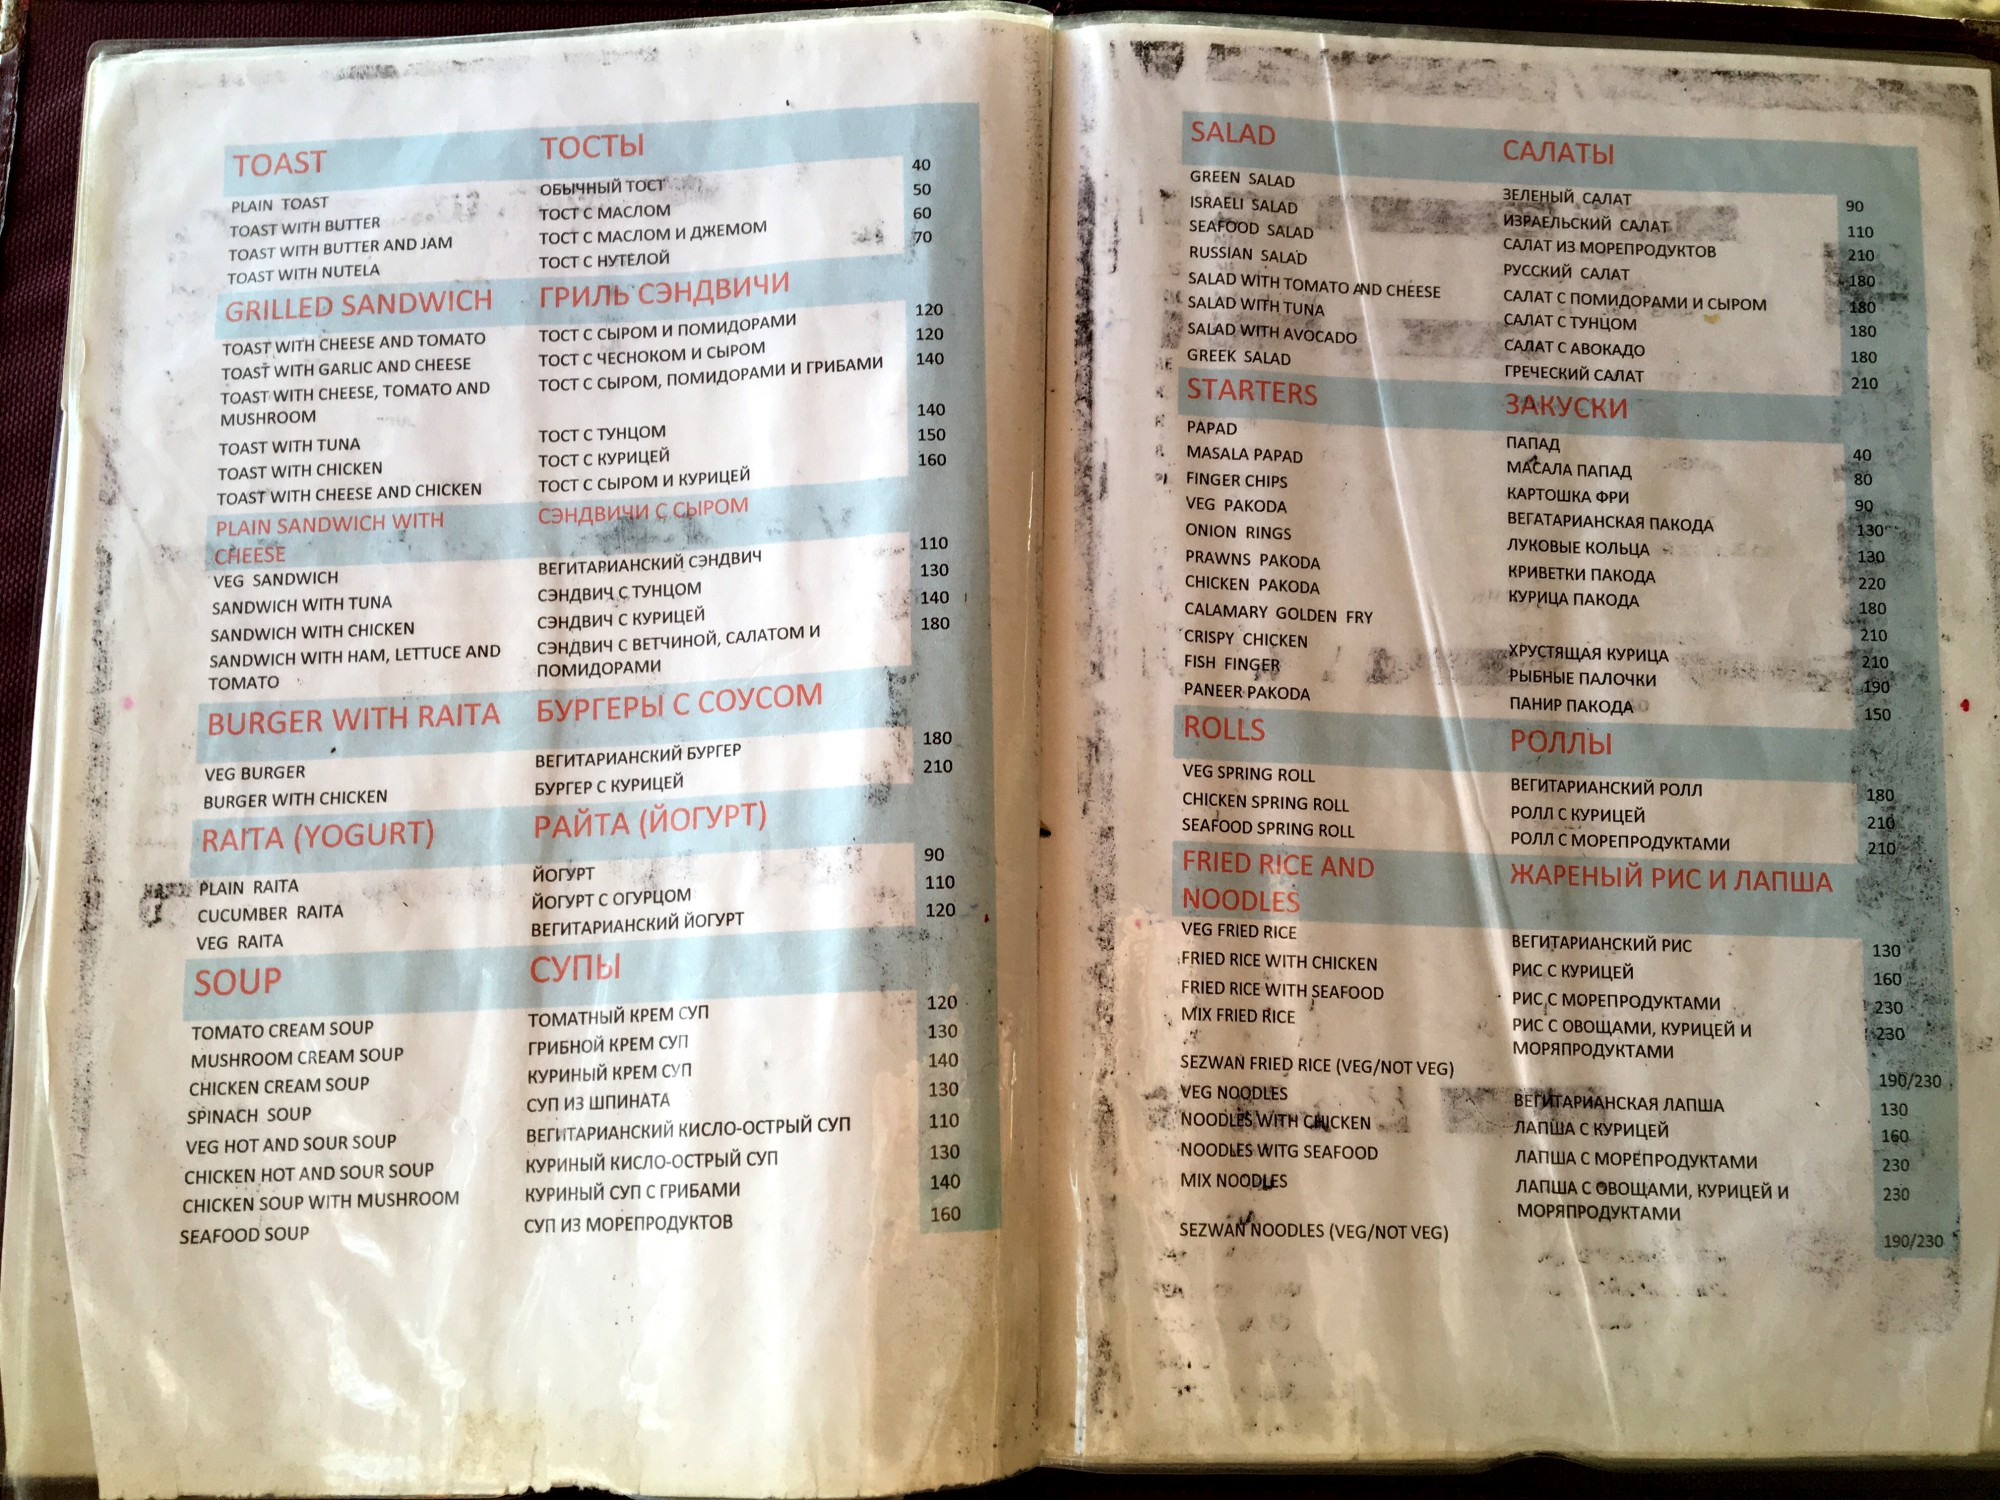 TOAST ТОСТЫ
PLAIN TOAST ОБЫЧНЫЙ ТОСТ 40
TOAST WITH BUTTER ТОСТ С МАСЛОМ 50
TOAST WITH BUTTER AND JAM ТОСТ С МАСЛОМ И ДЖЕМОМ 60
TOAST WITH NUTELA ТОСТ С НУТЕЛОЙ 70
GRILLED SANDWICH ГРИЛЬ СЭНДВИЧИ
TOAST WITH CHEESE AND TOMATO ТОСТ С СЫРОМ И ПОМИДОРАМИ 120
TOAST WITH GARLIC AND CHEESE ТОСТ С ЧЕСНОКОМ И СЫРОМ 120
TOAST WITH CHEESE, TOMATO AND ТОСТ С СЫРОМ, ПОМИДОРАМИ И ГРИБАМИ 140
MUSHROOM
TOAST WITH TUNA ТОСТ С ТУНЦОМ 140
TOAST WITH CHICKEN ТОСТ С КУРИЦЕЙ 150
TOAST WITH CHEESE AND CHICKEN ТОСТ С СЫРОМ И КУРИЦЕЙ 160
PLAIN SANDWICH WITH СЭНДВИЧИ С СЫРОМ
CHEESE
VEG SANDWICH ВЕГИТАРИАНСКИЙ СЭНДВИЧ 110
SANDWICH WITH TUNA СЭНДВИЧ С ТУНЦОМ 130
SANDWICH WITH CHICKEN СЭНДВИЧ С КУРИЦЕЙ 140
SANDWICH WITH HAM, LETTUCE AND СЭНДВИЧ С ВЕТЧИНОЙ, САЛАТОМ И 180
TOMATO ПОМИДОРАМИ
BURGER WITH RAITA БУРГЕРЫ С СОУСОМ
VEG BURGER ВЕГИТАРИАНСКИЙ БУРГЕР 180
BURGER WITH CHICKEN БУРГЕР С КУРИЦЕЙ 210
RAITA (YOGURT) РАЙТА (ЙОГУРТ)
PLAIN RAITA ЙОГУРТ 90
CUCUMBER RAITA ЙОГУРТ С ОГУРЦОМ 110
VEG RAITA ВЕГИТАРИАНСКИЙ ЙОГУРТ 120
SOUP СУПЫ
TOMATO CREAM SOUP ТОМАТНЫЙ КРЕМ СУП 120
MUSHROOM CREAM SOUP ГРИБНОЙ КРЕМ СУП 130
CHICKEN CREAM SOUP КУРИНЫЙ КРЕМ СУП 140
SPINACH SOUP СУП ИЗ ШПИНАТА 130
VEG HOT AND SOUR SOUP ВЕГИТАРИАНСКИЙ КИСЛО-ОСТРЫЙ СУП 110
CHICKEN HOT AND SOUR SOUP КУРИНЫЙ КИСЛО-ОСТРЫЙ СУП 130
CHICKEN SOUP WITH MUSHROOM КУРИНЫЙ СУП С ГРИБАМИ 140
SEAFOOD SOUP СУП ИЗ МОРЕПРОДУКТОВ 160
SALAD САЛАТЫ
GREEN SALAD ЗЕЛЕНЫЙ САЛАТ 90
ISRAELI SALAD ИЗРАЕЛЬСКИЙ САЛАТ 110
SEAFOOD SALAD САЛАТ ИЗ МОРЕПРОДУКТОВ 210
RUSSIAN SALAD РУССКИЙ САЛАТ 180
SALAD WITH TOMATO AND CHEESE САЛАТ С ПОМИДОРАМИ И СЫРОМ 180
SALAD WITH TUNA САЛАТ С ТУНЦОМ 180
SALAD WITH AVOCADO САЛАТ С АВОКАДО 180
GREEK SALAD ГРЕЧЕСКИЙ САЛАТ 210
STARTERS ЗАКУСКИ
PAPAD ПАПАД 40
MASALA PAPAD МАСАЛА ПАПАД 80
FINGER CHIPS КАРТОШКА ФРИ 90
VEG PAKODA ВЕГАТАРИАНСКАЯ ПАКОДА 130
ONION RINGS ЛУКОВЫЕ КОЛЬЦА 130
PRAWNS PAKODA КРИВЕТКИ ПАКОДА 220
CHICKEN PAKODA КУРИЦА ПАКОДА 180
CALAMARY GOLDEN FRY 210
CRISPY CHICKEN ХРУСТЯЩАЯ КУРИЦА 210
FISH FINGER РЫБНЫЕ ПАЛОЧКИ 190
PANEER PAKODA ПАНИР ПАКОДА 150
ROLLS РОЛЛЫ
VEG SPRING ROLL ВЕГИТАРИАНСКИЙ РОЛЛ 180
CHICKEN SPRING ROLL РОЛЛ С КУРИЦЕЙ 210
SEAFOOD SPRING ROLL РОЛЛ С МОРЕПРОДУКТАМИ 210
FRIED RICE AND ЖАРЕНЫЙ РИС И ЛАПША
NOODLES
VEG FRIED RICE ВЕГИТАРИАНСКИЙ РИС 130
FRIED RICE WITH CHICKEN РИС С КУРИЦЕЙ 160
FRIED RICE WITH SEAFOOD РИС С МОРЕПРОДУКТАМИ 230
MIX FRIED RICE РИС С ОВОЩАМИ, КУРИЦЕЙ И 230
МОРЯПРОДУКТАМИ
SEZWAN FRIED RICE (VEG/NOT VEG) 190/230
VEG NOODLES ВЕГИТАРИАНСКАЯ ЛАПША 130
NOODLES WITH CHICKEN ЛАПША С КУРИЦЕЙ 160
NOODLES WITG SEAFOOD ЛАПША С МОРЕПРОДУКТАМИ 230
MIX NOODLES ЛАПША С ОВОЩАМИ, КУРИЦЕЙ И 230
МОРЯПРОДУКТАМИ
SEZWAN NOODLES (VEG/NOT VEG) 190/230